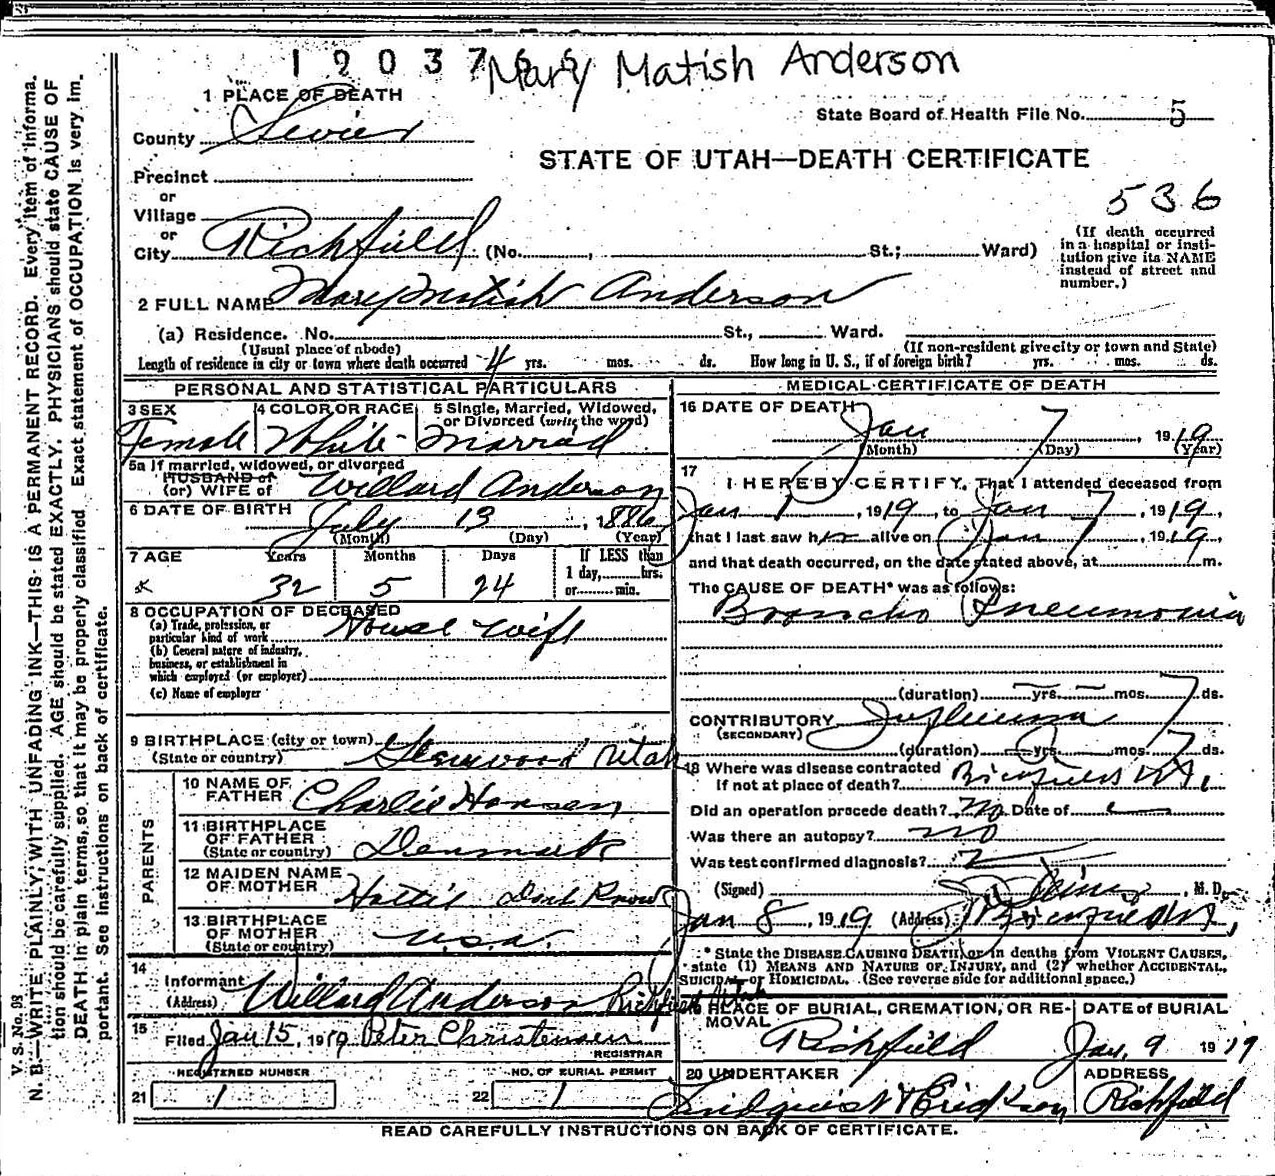 1 2 0 3 7 6 6 Mary Matish Anderson
1 PLACE OF DEATH
County Sevier
State Board of Health File No. 5
STATE OF UTAH—DEATH CERTIFICATE
Precinct
or
Village
or
City Richfield (No. , St.; Ward)
536
(If death occurred
in a hospital or insti-
tution give its NAME
instead of street and
number.)
2 FULL NAME Mary Matish Anderson
(a) Residence. No. St., Ward.
(Usual place of abode) (If non-resident give city or town and State)
Length of residence in city or town where death occurred 4 yrs. mos. ds. How long in U. S., if of foreign birth? yrs. mos. ds.
PERSONAL AND STATISTICAL PARTICULARS
3 SEX
Female
4 COLOR OR RACE
White
5 Single, Married, Widowed,
or Divorced (write the word)
Married
5a If married, widowed, or divorced
HUSBAND of
(or) WIFE of Willard Anderson
6 DATE OF BIRTH
July 13, 1886
(Month) (Day) (Year)
7 AGE Years Months Days If LESS than
1 day, hrs.
or min.
32 5 24
8 OCCUPATION OF DECEASED
(a) Trade, profession, or
particular kind of work House Wife
(b) General nature of industry,
business, or establishment in
which employed (or employer)
(c) Name of employer
9 BIRTHPLACE (city or town) Glenwood Utah
(State or country)
PARENTS
10 NAME OF
FATHER Charlie Hansen
11 BIRTHPLACE
OF FATHER
(State or country) Denmark
12 MAIDEN NAME
OF MOTHER Hattie Dont Know
13 BIRTHPLACE
OF MOTHER
(State or country) U.S.A.
14
Informant Willard Anderson Richfield Utah
(Address)
15
Filed Jan 15, 1919 Peter Christensen
REGISTRAR
REGISTERED NUMBER
21 1
NO. OF BURIAL PERMIT
22 1
MEDICAL CERTIFICATE OF DEATH
16 DATE OF DEATH
Jan 7, 1919
(Month) (Day) (Year)
17
I HEREBY CERTIFY, That I attended deceased from
Jan 1, 1919, to Jan 7, 1919,
that I last saw her alive on Jan 7, 1919,
and that death occurred, on the date stated above, at m.
The CAUSE OF DEATH* was as follows:
Broncho Pneumonia
(duration) — yrs. — mos. 7 ds.
CONTRIBUTORY Influenza
(SECONDARY)
(duration) yrs. mos. 7 ds.
18 Where was disease contracted
if not at place of death? Richfield Ut,
Did an operation precede death? No Date of
Was there an autopsy? no
Was test confirmed diagnosis?
(Signed) , M. D.
Jan 8, 1919 (Address) Richfield Ut,
* State the DISEASE CAUSING DEATH, or in deaths from VIOLENT CAUSES,
state (1) MEANS AND NATURE OF INJURY, and (2) whether ACCIDENTAL,
SUICIDAL or HOMICIDAL. (See reverse side for additional space.)
19 PLACE OF BURIAL, CREMATION, OR RE-
MOVAL
Richfield
DATE of BURIAL
Jan. 9 1919
20 UNDERTAKER
Lindquist & Erickson
ADDRESS
Richfield
READ CAREFULLY INSTRUCTIONS ON BACK OF CERTIFICATE.
V. S. No. 98
N. B.—WRITE PLAINLY, WITH UNFADING INK—THIS IS A PERMANENT RECORD. Every item of informa-
tion should be carefully supplied. AGE should be stated EXACTLY. PHYSICIANS should state CAUSE OF
DEATH in plain terms, so that it may be properly classified. Exact statement of OCCUPATION is very im-
portant. See instructions on back of certificate.